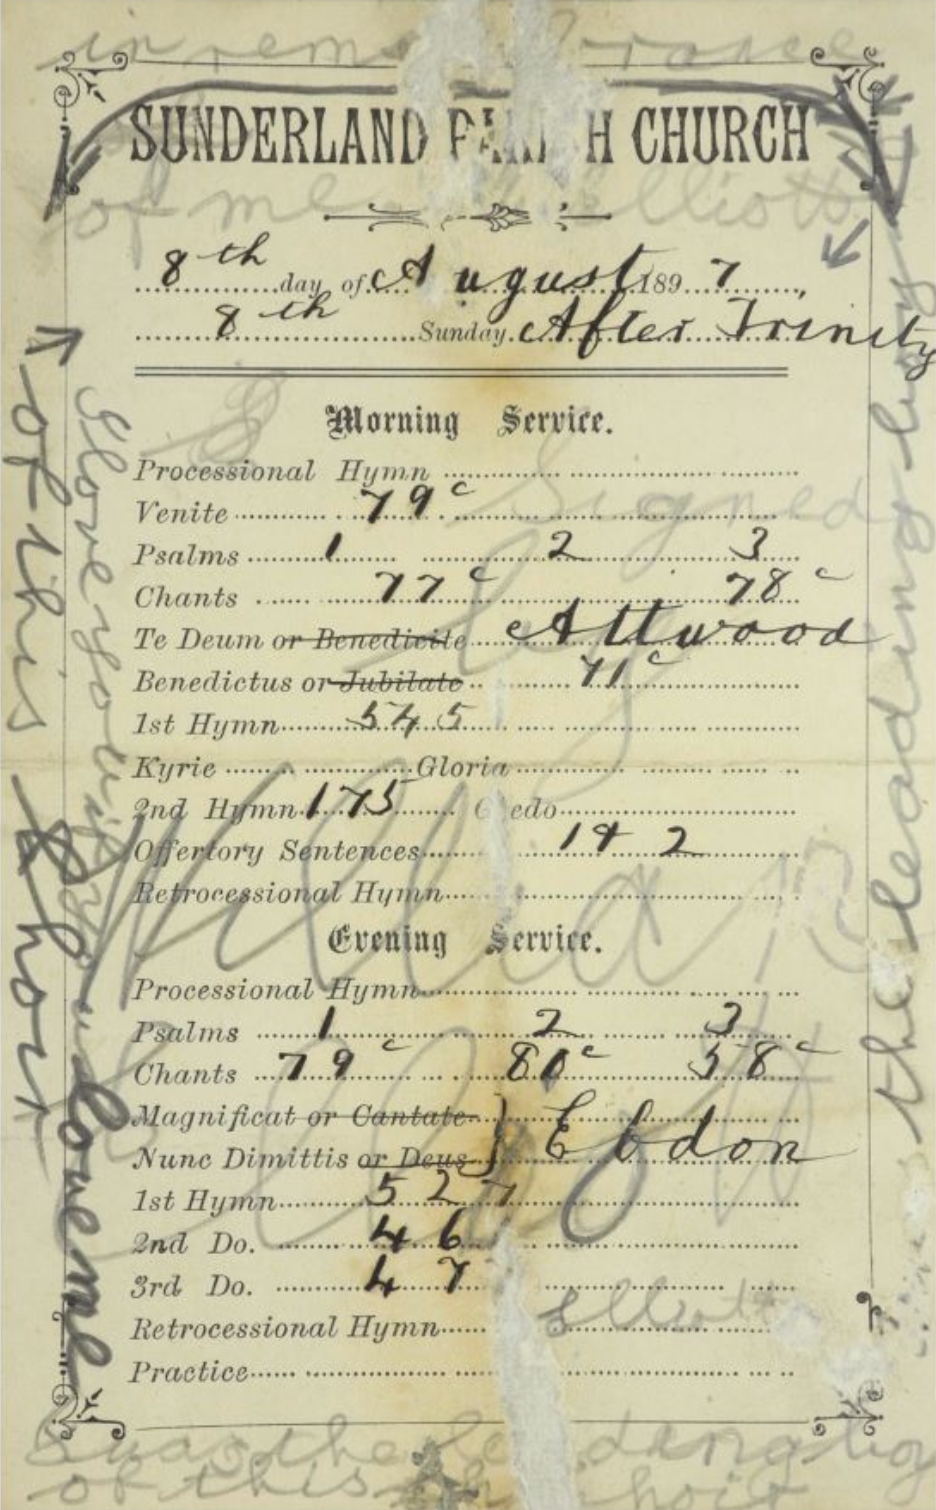 in rem rance
SUNDERLAND PARISH CHURCH
of me Elliott
8th day of August 1897
8th Sunday After Trinity
Morning Service.
Processional Hymn
Venite 79c
Signed
Psalms 1 2 3
Chants 77c 78c
Te Deum or Benedicite Attwood
Benedictus or Jubilate 71c
1st Hymn 545
Kyrie Gloria
2nd Hymn 175 Credo
Offertory Sentences 14 2
Retrocessional Hymn
Evening Service.
Processional Hymn
Psalms 1 2 3
Chants 79c 80c 58c
Magnificat or Cantate
Nunc Dimittis or Deus } Ebdon
1st Hymn 527
2nd Do. 46
3rd Do. 47
Retrocessional Hymn Elliott
Practice
was the leading boy
of this choir
the leading boy
of this
love me